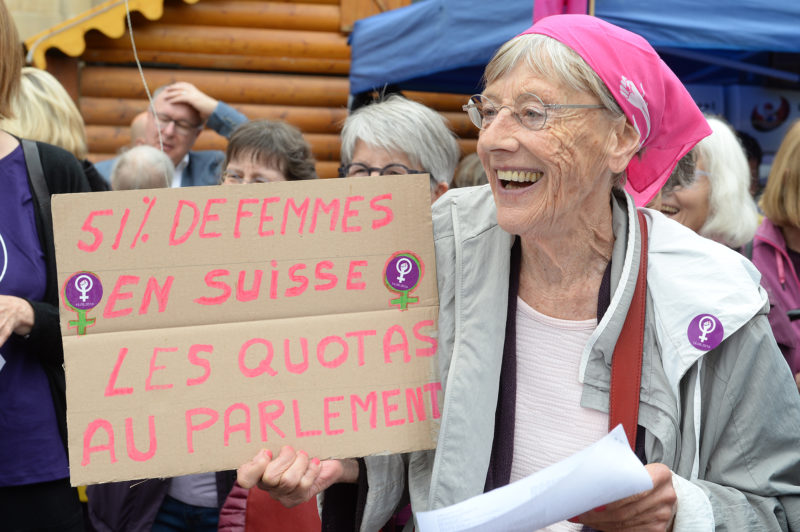 51% DE FEMMES
EN SUISSE
LES QUOTAS
AU PARLEMENT